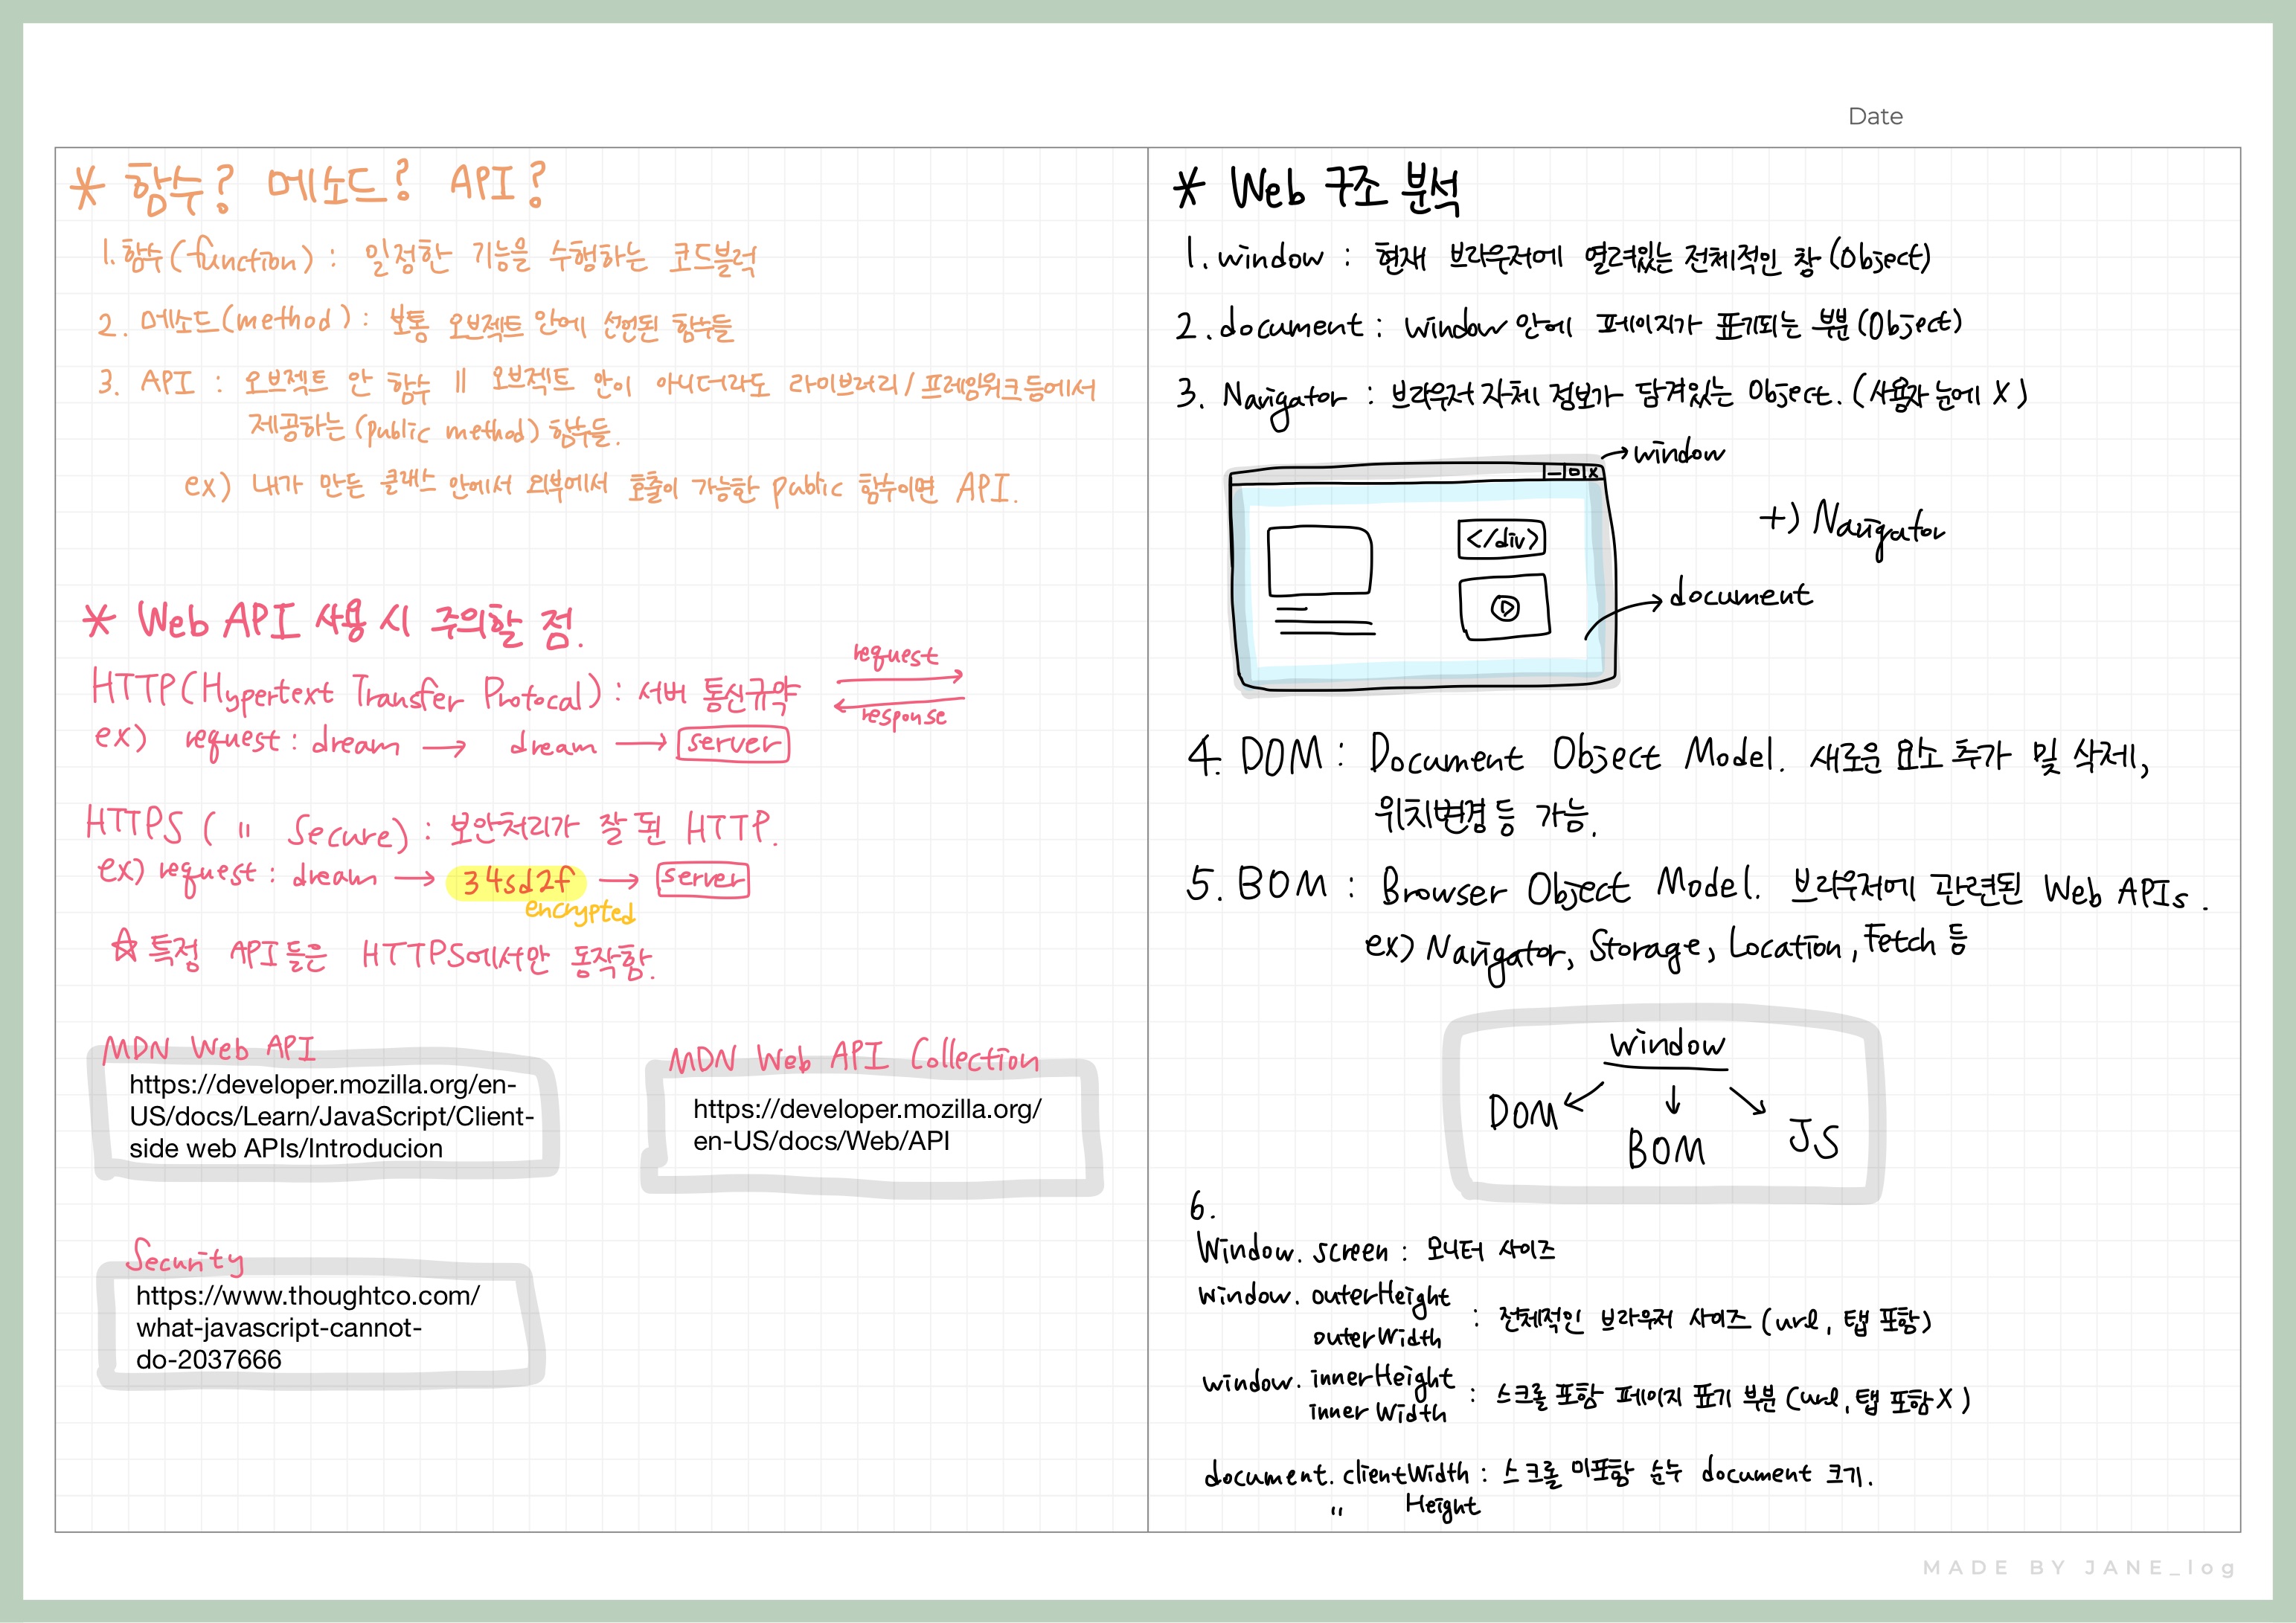 Date
* 함수? 메소드? API?
1. 함수(function) : 일정한 기능을 수행하는 코드블럭
2. 메소드(method) : 보통 오브젝트 안에 선언된 함수들
3. API : 오브젝트 안 함수 || 오브젝트 안이 아니더라도 라이브러리/프레임워크 등에서
제공하는 (public method) 함수들.
ex) 내가 만든 클래스 안에서 외부에서 호출이 가능한 public 함수이면 API.
* Web API 사용 시 주의할 점.
HTTP(Hypertext Transfer Protocal) : 서버 통신규약
request
response
ex) request : dream → dream → server
HTTPS ( " Secure) : 보안처리가 잘 된 HTTP.
ex) request : dream → 34sd2f → server
encrypted
☆ 특정 API들은 HTTPS에서만 동작함.
MDN Web API
https://developer.mozilla.org/en-
US/docs/Learn/JavaScript/Client-
side web APIs/Introducion
MDN Web API Collection
https://developer.mozilla.org/
en-US/docs/Web/API
Security
https://www.thoughtco.com/
what-javascript-cannot-
do-2037666
* Web 구조 분석
1. window : 현재 브라우저에 열려있는 전체적인 창 (Object)
2. document : window 안에 페이지가 표기되는 부분 (Object)
3. Navigator : 브라우저 자체 정보가 담겨있는 Object. (사용자 눈에 X)
→ window
+) Navigator
</div>
→ document
4. DOM : Document Object Model. 새로운 요소 추가 및 삭제,
위치변경 등 가능.
5. BOM : Browser Object Model. 브라우저에 관련된 Web APIs.
ex) Navigator, Storage, Location, Fetch 등
window
DOM
BOM
JS
6.
Window. screen : 모니터 사이즈
window. outerHeight
outerWidth : 전체적인 브라우저 사이즈 (url, 탭 포함)
window. innerHeight
innerWidth : 스크롤 포함 페이지 표기 부분 (url, 탭 포함 X)
document. clientWidth : 스크롤 미포함 순수 document 크기.
" Height
MADE BY JANE_log